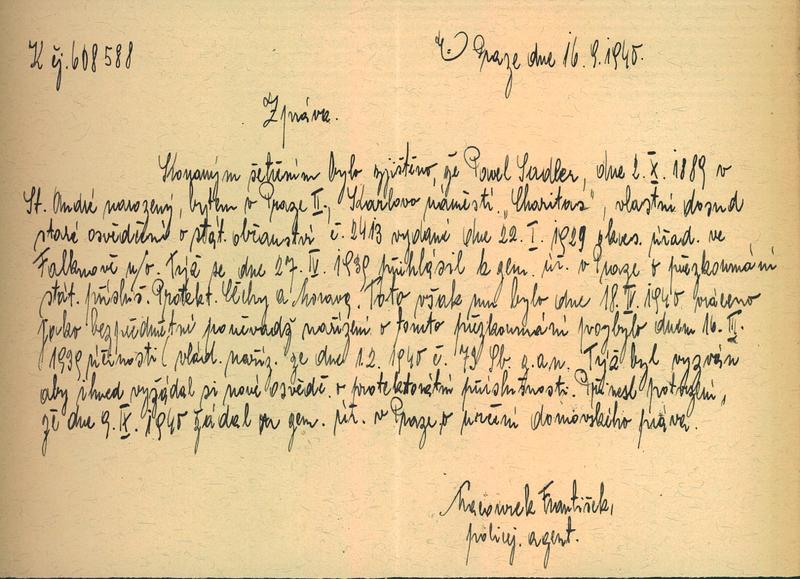 K čj. 608588
V Praze dne 16.9.1940.
Zpráva.
Konaným šetřením bylo zjištěno, že Pavel Sadler, dne 2. X. 1889 v
St. André narozený, bytem v Praze II., Karlovo náměstí „Charitas", vlastní dosud
staré osvědčení o stát. občanství č. 2413 vydané dne 22. I. 1929 okres. úřad. ve
Falknově n/o. Týž se dne 27. IV. 1939 přihlásil k gem. úř. v Praze o přezkoumání
stát. přísluš. Protekt. Čechy a Morava. Toto však mu bylo dne 18. IV. 1940 vráceno
jako bezpředmětné poněvadž nařízení o tomto přezkoumání pozbylo dnem 16. III.
1939 účinnosti vlád. naříz. ze dne 1.2. 1940 č. 79 Sb. z. a n. Týž byl vyzván
aby ihned vyžádal si nové osvědč. o protektorátní příslušnosti. Přinesl potvrzení,
že dne 9. IX. 1940 žádal na gem. úř. v Praze o určení domovského práva.
František,
policej. agent.